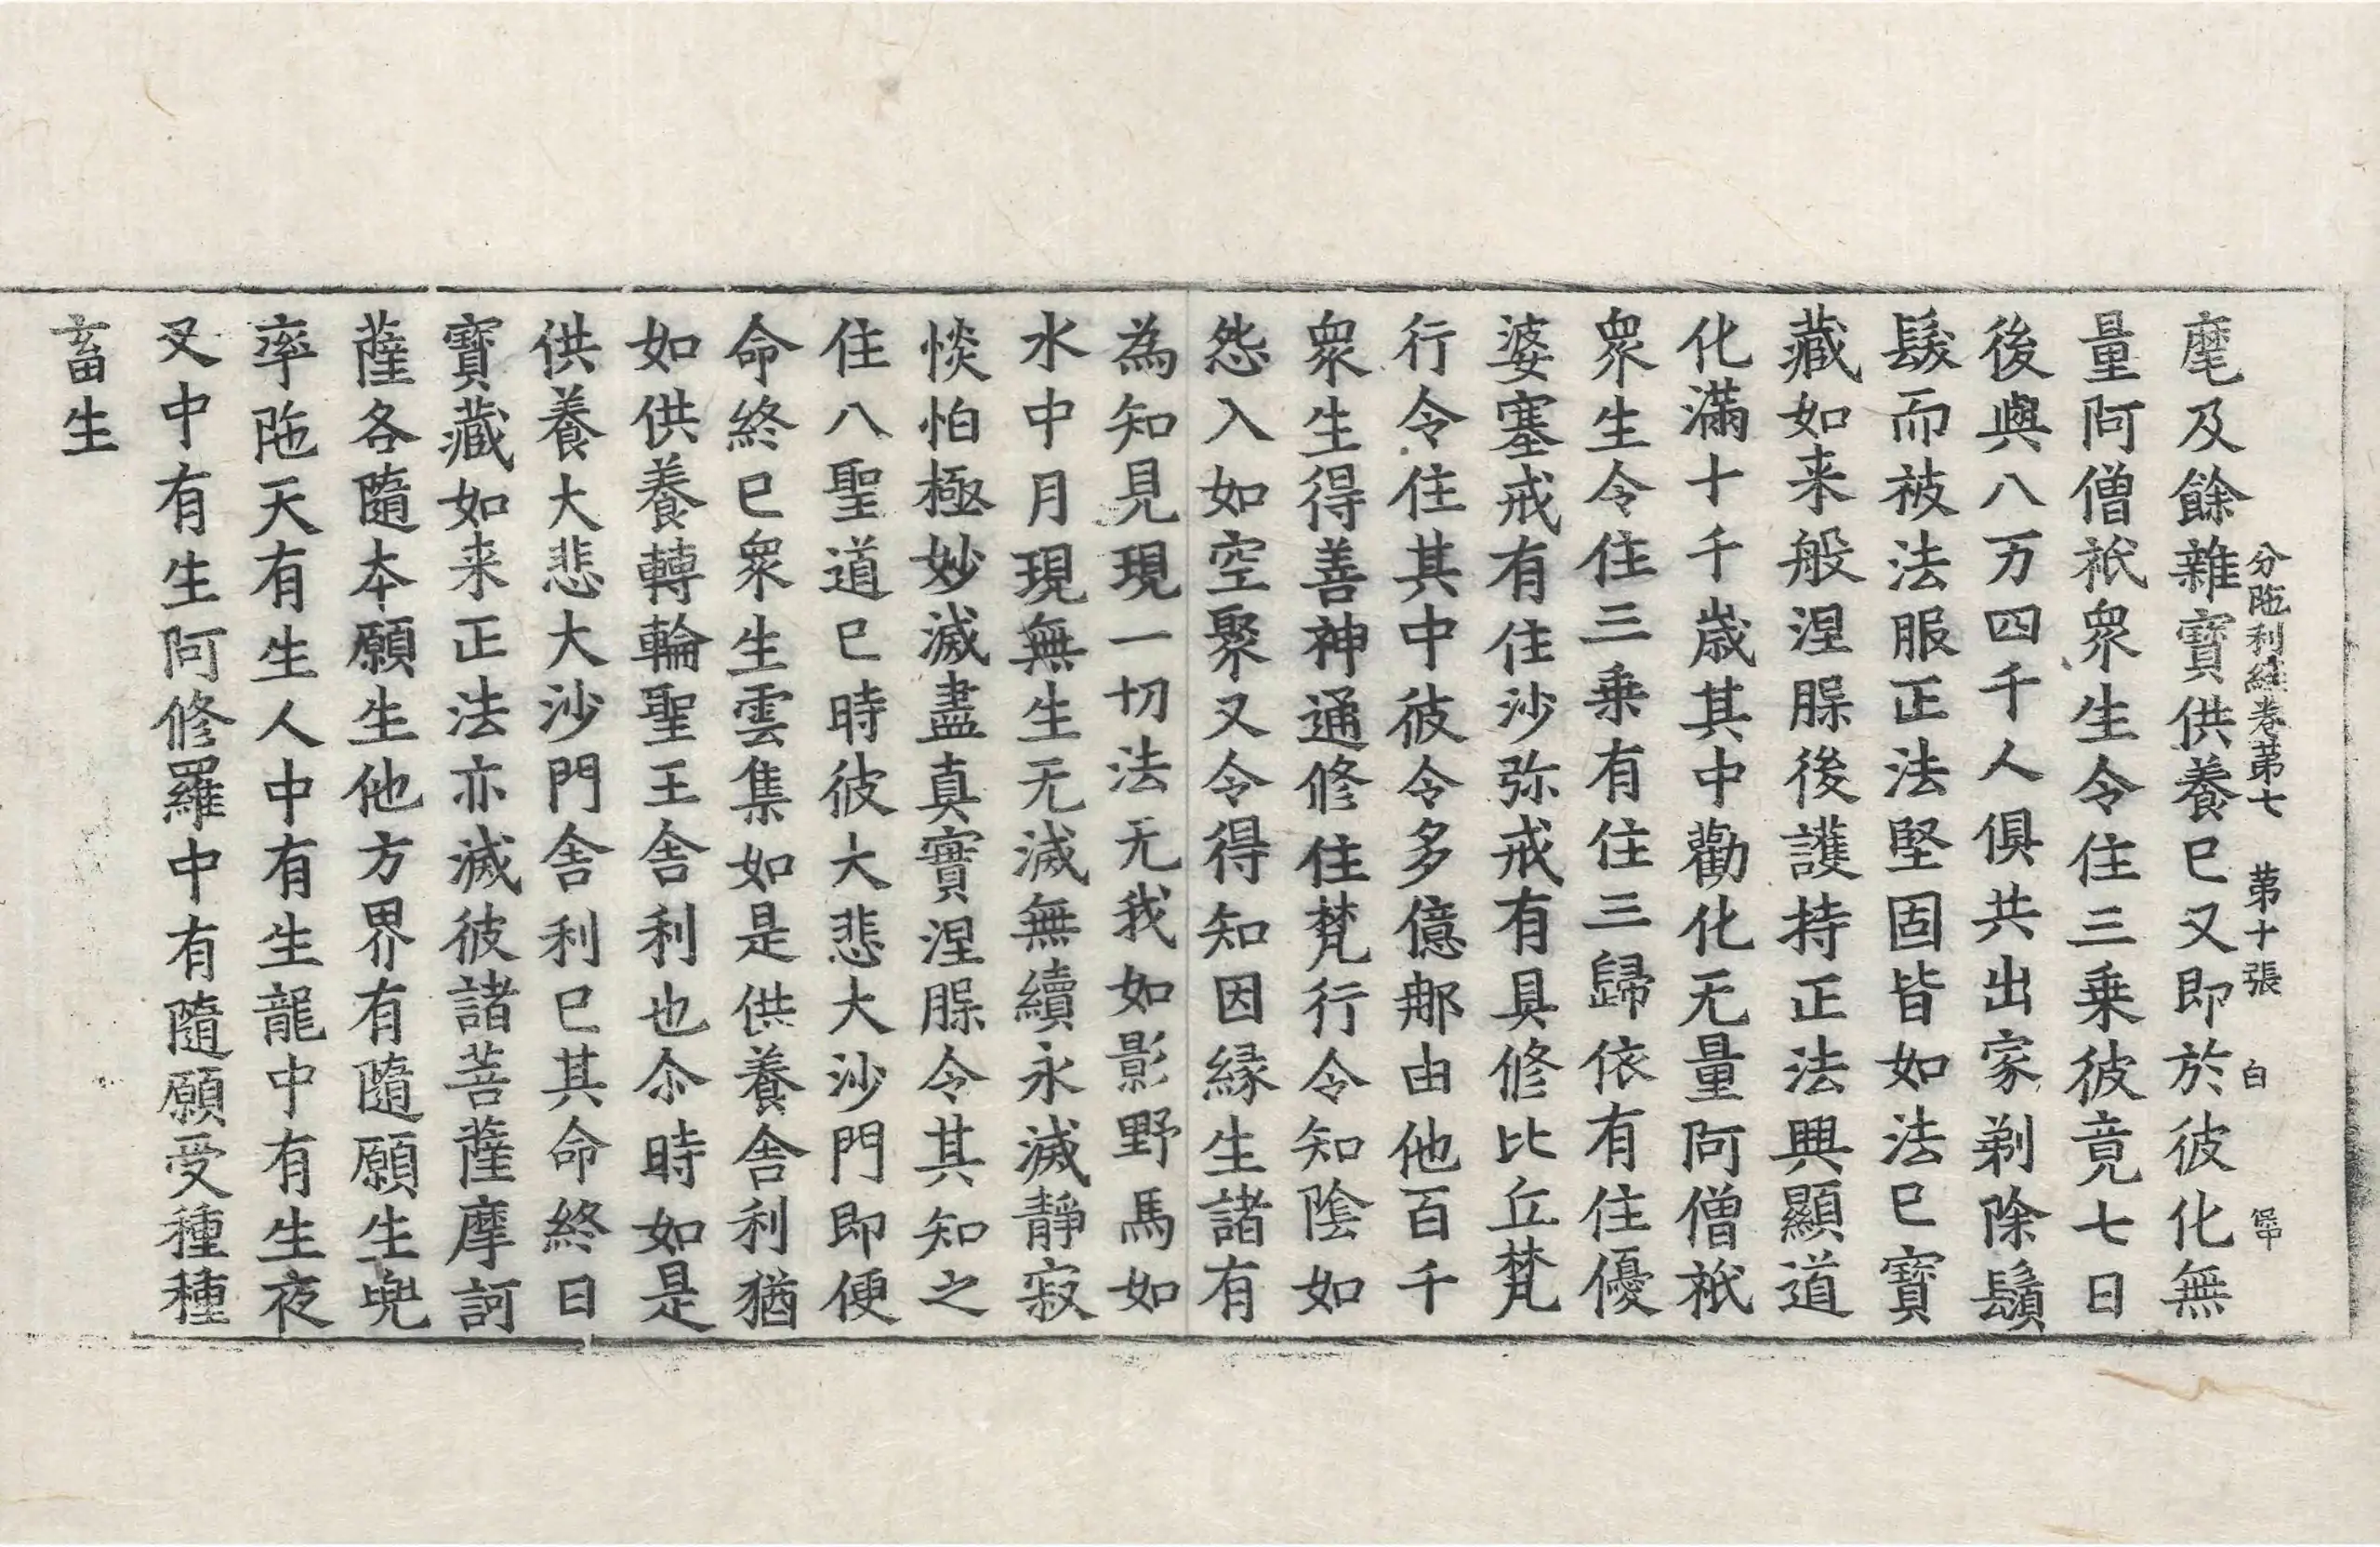 分陁利經卷第七 第十張 白
麾及餘雜寶供養已又即於彼化無
量阿僧祇衆生令住三乗彼竟七日
後與八万四千人俱共出家剃除鬚
髮而被法服正法堅固皆如法已寶
藏如来般涅𦙁後護持正法興顯道
化滿十千歳其中勸化无量阿僧祇
衆生令住三乗有住三歸依有住優
婆塞戒有住沙弥戒有具修比丘梵
行令住其中彼令多億那由他百千
衆生得善神通修住梵行令知陰如
怨入如空聚又令得知因緣生諸有
為知見現一切法无我如影野馬如
水中月現無生无滅無續永滅靜寂
惔怕極妙滅盡真實涅𦙁令其知之
住八聖道已時彼大悲大沙門即便
命終已衆生雲集如是供養舍利猶
如供養轉輪聖王舍利也尒時如是
供養大悲大沙門舍利已其命終日
寶藏如来正法亦滅彼諸菩薩摩訶
薩各隨本願生他方界有隨願生兜
率陁天有生人中有生龍中有生夜
叉中有生阿修羅中有隨願受種種
畜生